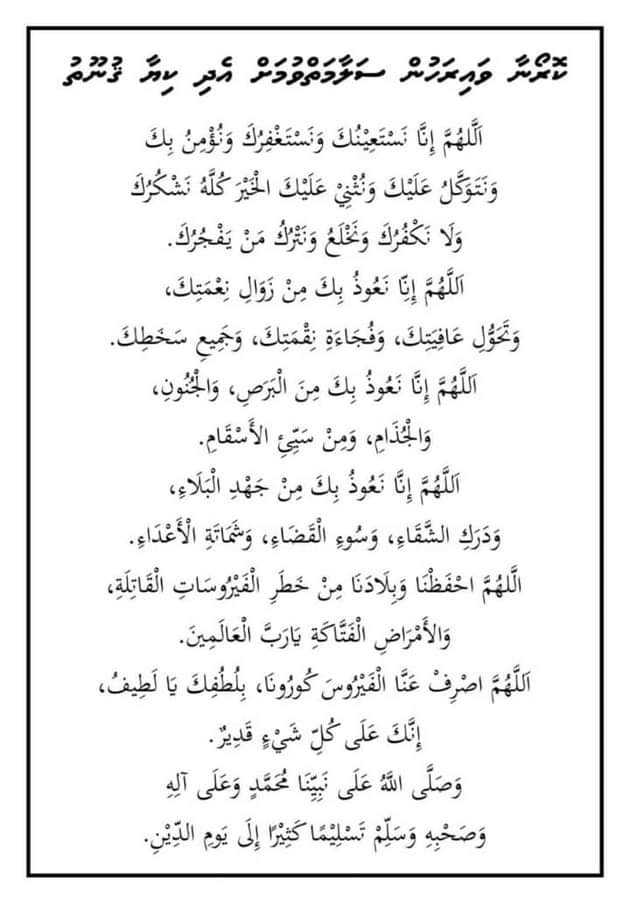 ކޮރޯނާ ވައިރަހުން ސަލާމަތްވުމަށް އެދި ކިޔާ ޤުނޫތު
اَللهُمَّ إِنَّا نَسْتَعِيْنُكَ وَنَسْتَغْفِرُكَ وَنُؤْمِنُ بِكَ
وَنَتَوَكَّلُ عَلَيْكَ وَنُثْنِيْ عَلَيْكَ الْخَيْرَ كُلَّهُ نَشْكُرُكَ
وَلَا نَكْفُرُكَ وَنَخْلَعُ وَنَتْرُكُ مَنْ يَفْجُرُكَ.
اَللَّهُمَّ إِنّا نَعُوذُ بِكَ مِنْ زَوَالِ نِعْمَتِكَ،
وَتَحَوُّلِ عَافِيَتِكَ، وَفُجَاءَةِ نِقْمَتِكَ، وَجَمِيعِ سَخَطِكَ.
اَللَّهُمَّ إِنَّا نَعُوذُ بِكَ مِنَ الْبَرَصِ، وَالْجُنُونِ،
وَالْجُذَامِ، وَمِنْ سَيِّئِ الأَسْقَامِ.
اَللَّهُمَّ إِنَّا نَعُوذُ بِكَ مِنْ جَهْدِ الْبَلَاءِ،
وَدَرَكِ الشَّقَاءِ، وَسُوءِ الْقَضَاءِ، وَشَمَاتَةِ الْأَعْدَاءِ.
الَّلهُمَّ احْفَظْنَا وَبِلَادَنَا مِنْ خَطَرِ الْفَيْرُوسَاتِ الْقَاتِلَةِ،
وَالأَمْرَاضِ الْفَتَّاكَةِ يَارَبَّ الْعَالَمِينَ.
اَللَّهُمَّ اصْرِفْ عَنَّا الْفَيْرُوسَ كُورُونَا، بِلُطْفِكَ يَا لَطِيفُ،
إِنَّكَ عَلَى كُلِّ شَيْءٍ قَدِيرٌ.
وَصَلَّى اللَّهُ عَلَى نَبِيِّنَا مُحَمَّدٍ وَعَلَى آلِهِ
وَصَحْبِهِ وَسَلِّمْ تَسْلِيْمًا كَثِيْرًا إِلَى يَومِ الدِّيْنِ.